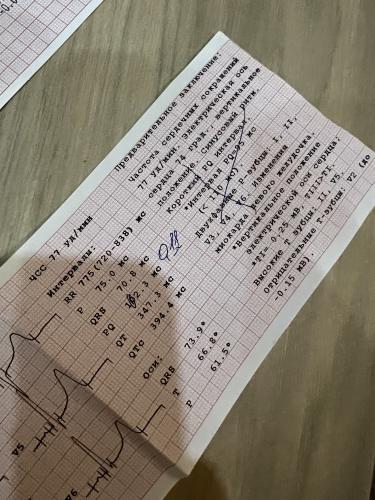 Предварительное заключение:
Частота сердечных сокращений
77 уд/мин. Электрическая ось
сердца 74 град. вертикальное
положение. Синусовый ритм.
Короткий PQ интервал
*интервал PQ=95 мс
Двухфазные P-зубцы: I, II,
V3, V4, V6. Изменения
миокарда левого желудочка.
*Вертикальное положение
электрической оси сердца;
*TI- 0.25 мВ, TIII>TI,
Высокие T зубцы: II, V5,
отрицательные T-зубцы: V2 (до
-0.15 мВ).
ЧСС 77 уд/мин
Интервалы:
RR 775(720-838) мс
P 75.0 мс
QRS 70.8 мс
PQ
QT 347.3 мс
QTc 394.4 мс
Оси:
QRS 73.9°
T 66.8°
P 61.5°
V5
V6